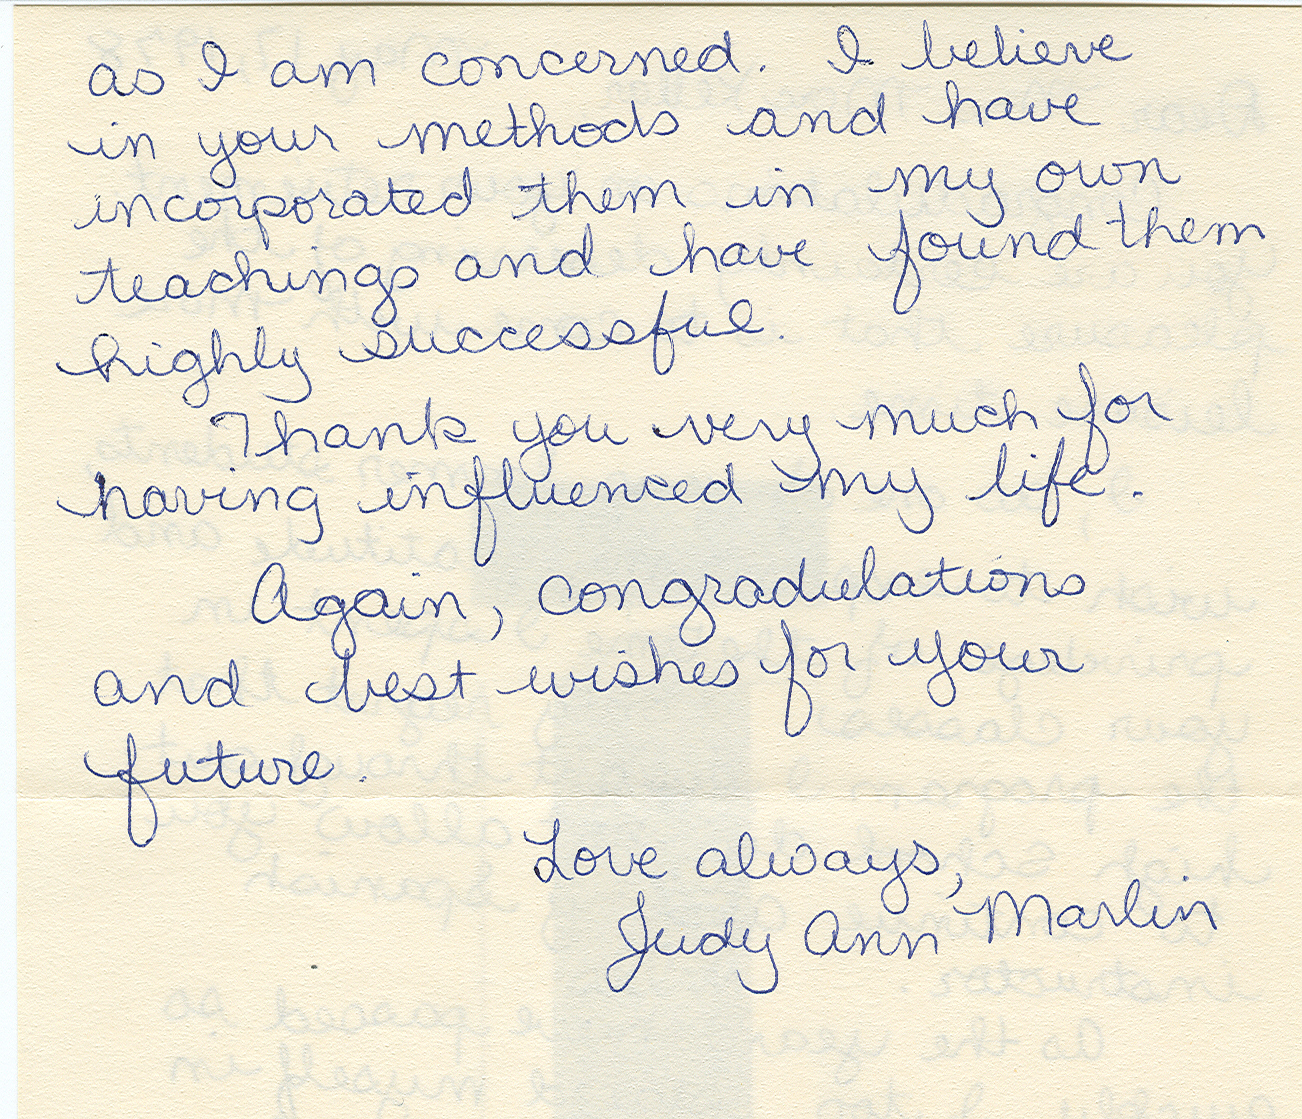 as I am concerned. I believe
in your methods and have
incorporated them in my own
teachings and have found them
highly successful.
Thank you very much for
having influenced my life.
Again, congradulations
and best wishes for your
future.
Love always,
Judy Ann Marlin